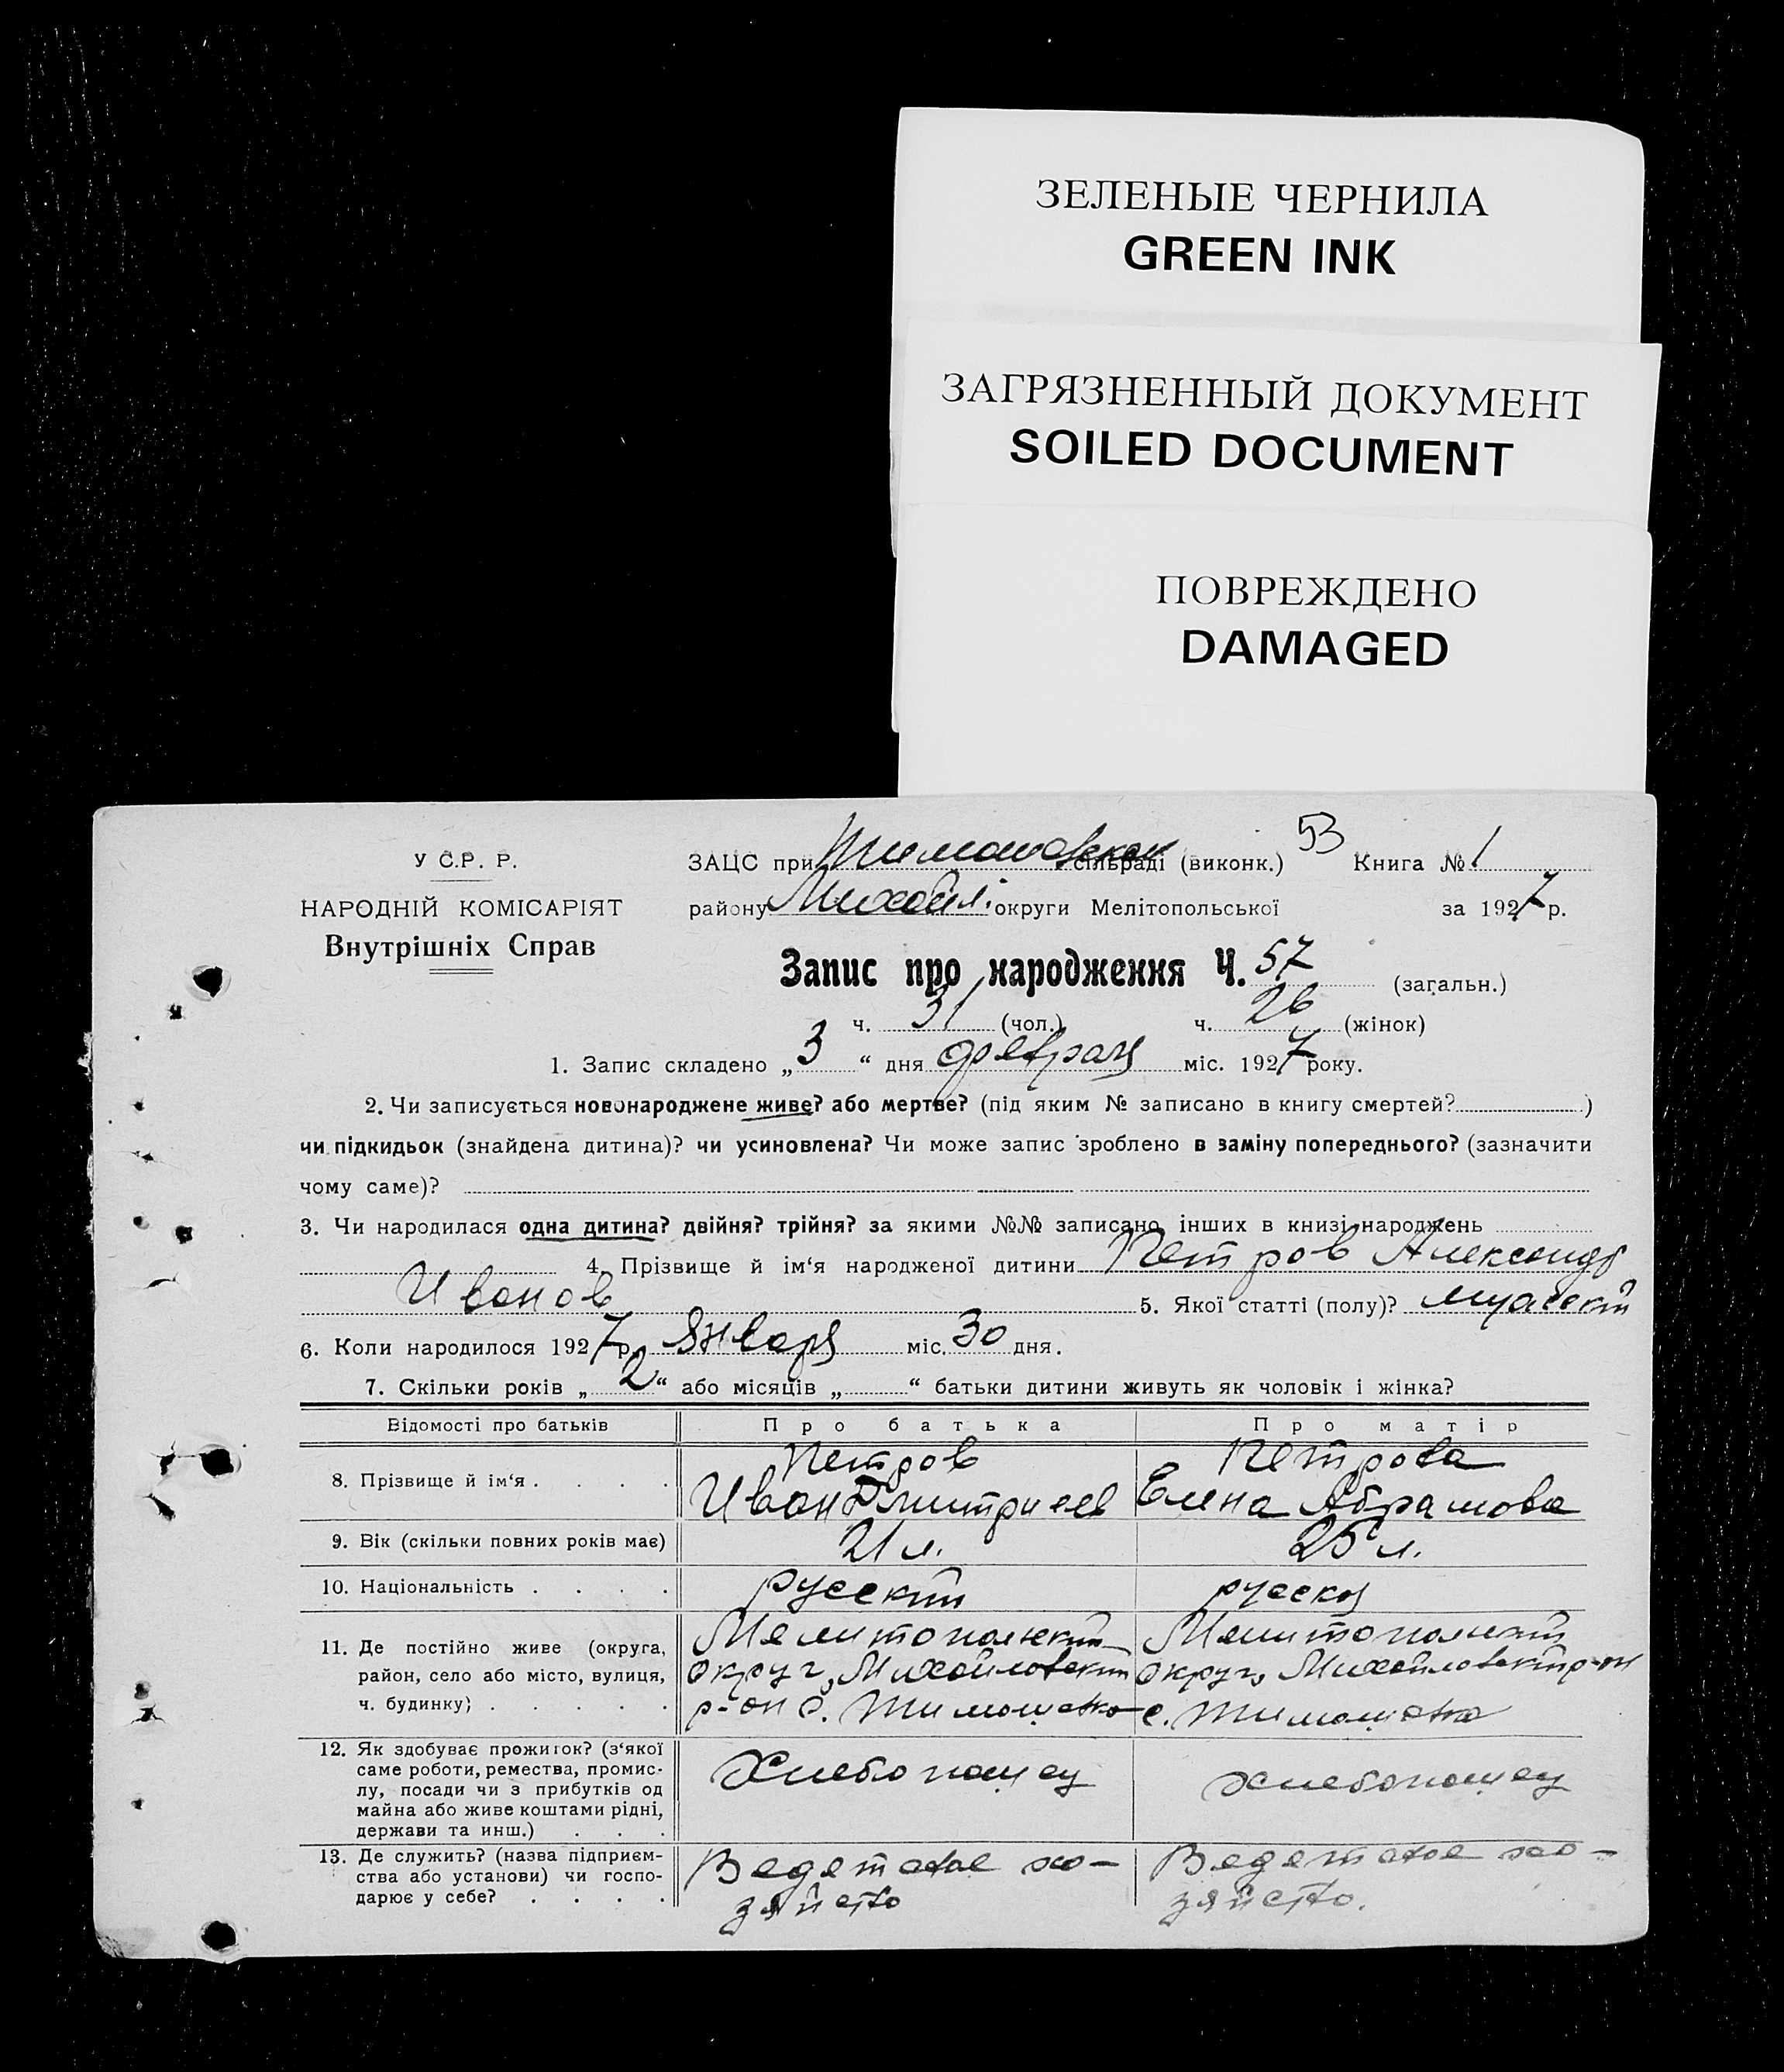 ЗЕЛЕНЫЕ ЧЕРНИЛА
GREEN INK
ЗАГРЯЗНЕННЫЙ ДОКУМЕНТ
SOILED DOCUMENT
ПОВРЕЖДЕНО
DAMAGED
У С.Р. Р.
НАРОДНІЙ КОМІСАРІЯТ
Внутрішніх Справ
ЗАЦС при Тимошовской сільраді (виконк.) 53 Книга № 1
району Михайл. округи Мелітопольської за 1927 р.
Запис про народження Ч. 57 (загальн.)
ч. 31 (чол.) ч. 26 (жінок)
1. Запис складено „ 3 “ дня февраля міс. 1927 року.
2. Чи записується новонароджене живе? або мертве? (під яким № записано в книгу смертей? )
чи підкидьок (знайдена дитина)? чи усиновлена? Чи може запис зроблено в заміну попереднього? (зазначити
чому саме)?
3. Чи народилася одна дитина? двійня? трійня? за якими №№ записано інших в книзі народжень
4. Прізвище й ім‘я народженої дитини Петров Александр
Иванов 5. Якої статті (полу)? мужскии
6. Коли народилося 1927 р. Января міс. 30 дня.
7. Скільки років „ 2 “ або місяців „ “ батьки дитини живуть як чоловік і жінка?
Відомості про батьків Про батька Про матір
8. Прізвище й ім‘я . . . . Петров Петрова
Иван Дмитриев Елена Абрамова
9. Вік (скільки повних років має) 21 л. 25 л.
10. Національність . . . . русскии русская
11. Де постійно живе (округа, Мелитопольскии Мелитопольскии
район, село або місто, вулиця, округ, Михайловскии округ, Михайловскии р-он
ч. будинку) . . . . . р-он с. Тимошовка с. Тимошовка
12. Як здобуває прожиток? (з‘якої
саме роботи, ремества, промис-
лу, посади чи з прибутків од Хлебопашец хлебопашец
майна або живе коштами рідні,
держави та инш.) . . .
13. Де служить? (назва підприєм- Ведет свое хо- Ведет свое хо-
ства або установи) чи госпо-
дарює у себе? . . . . зяйство зяйство.